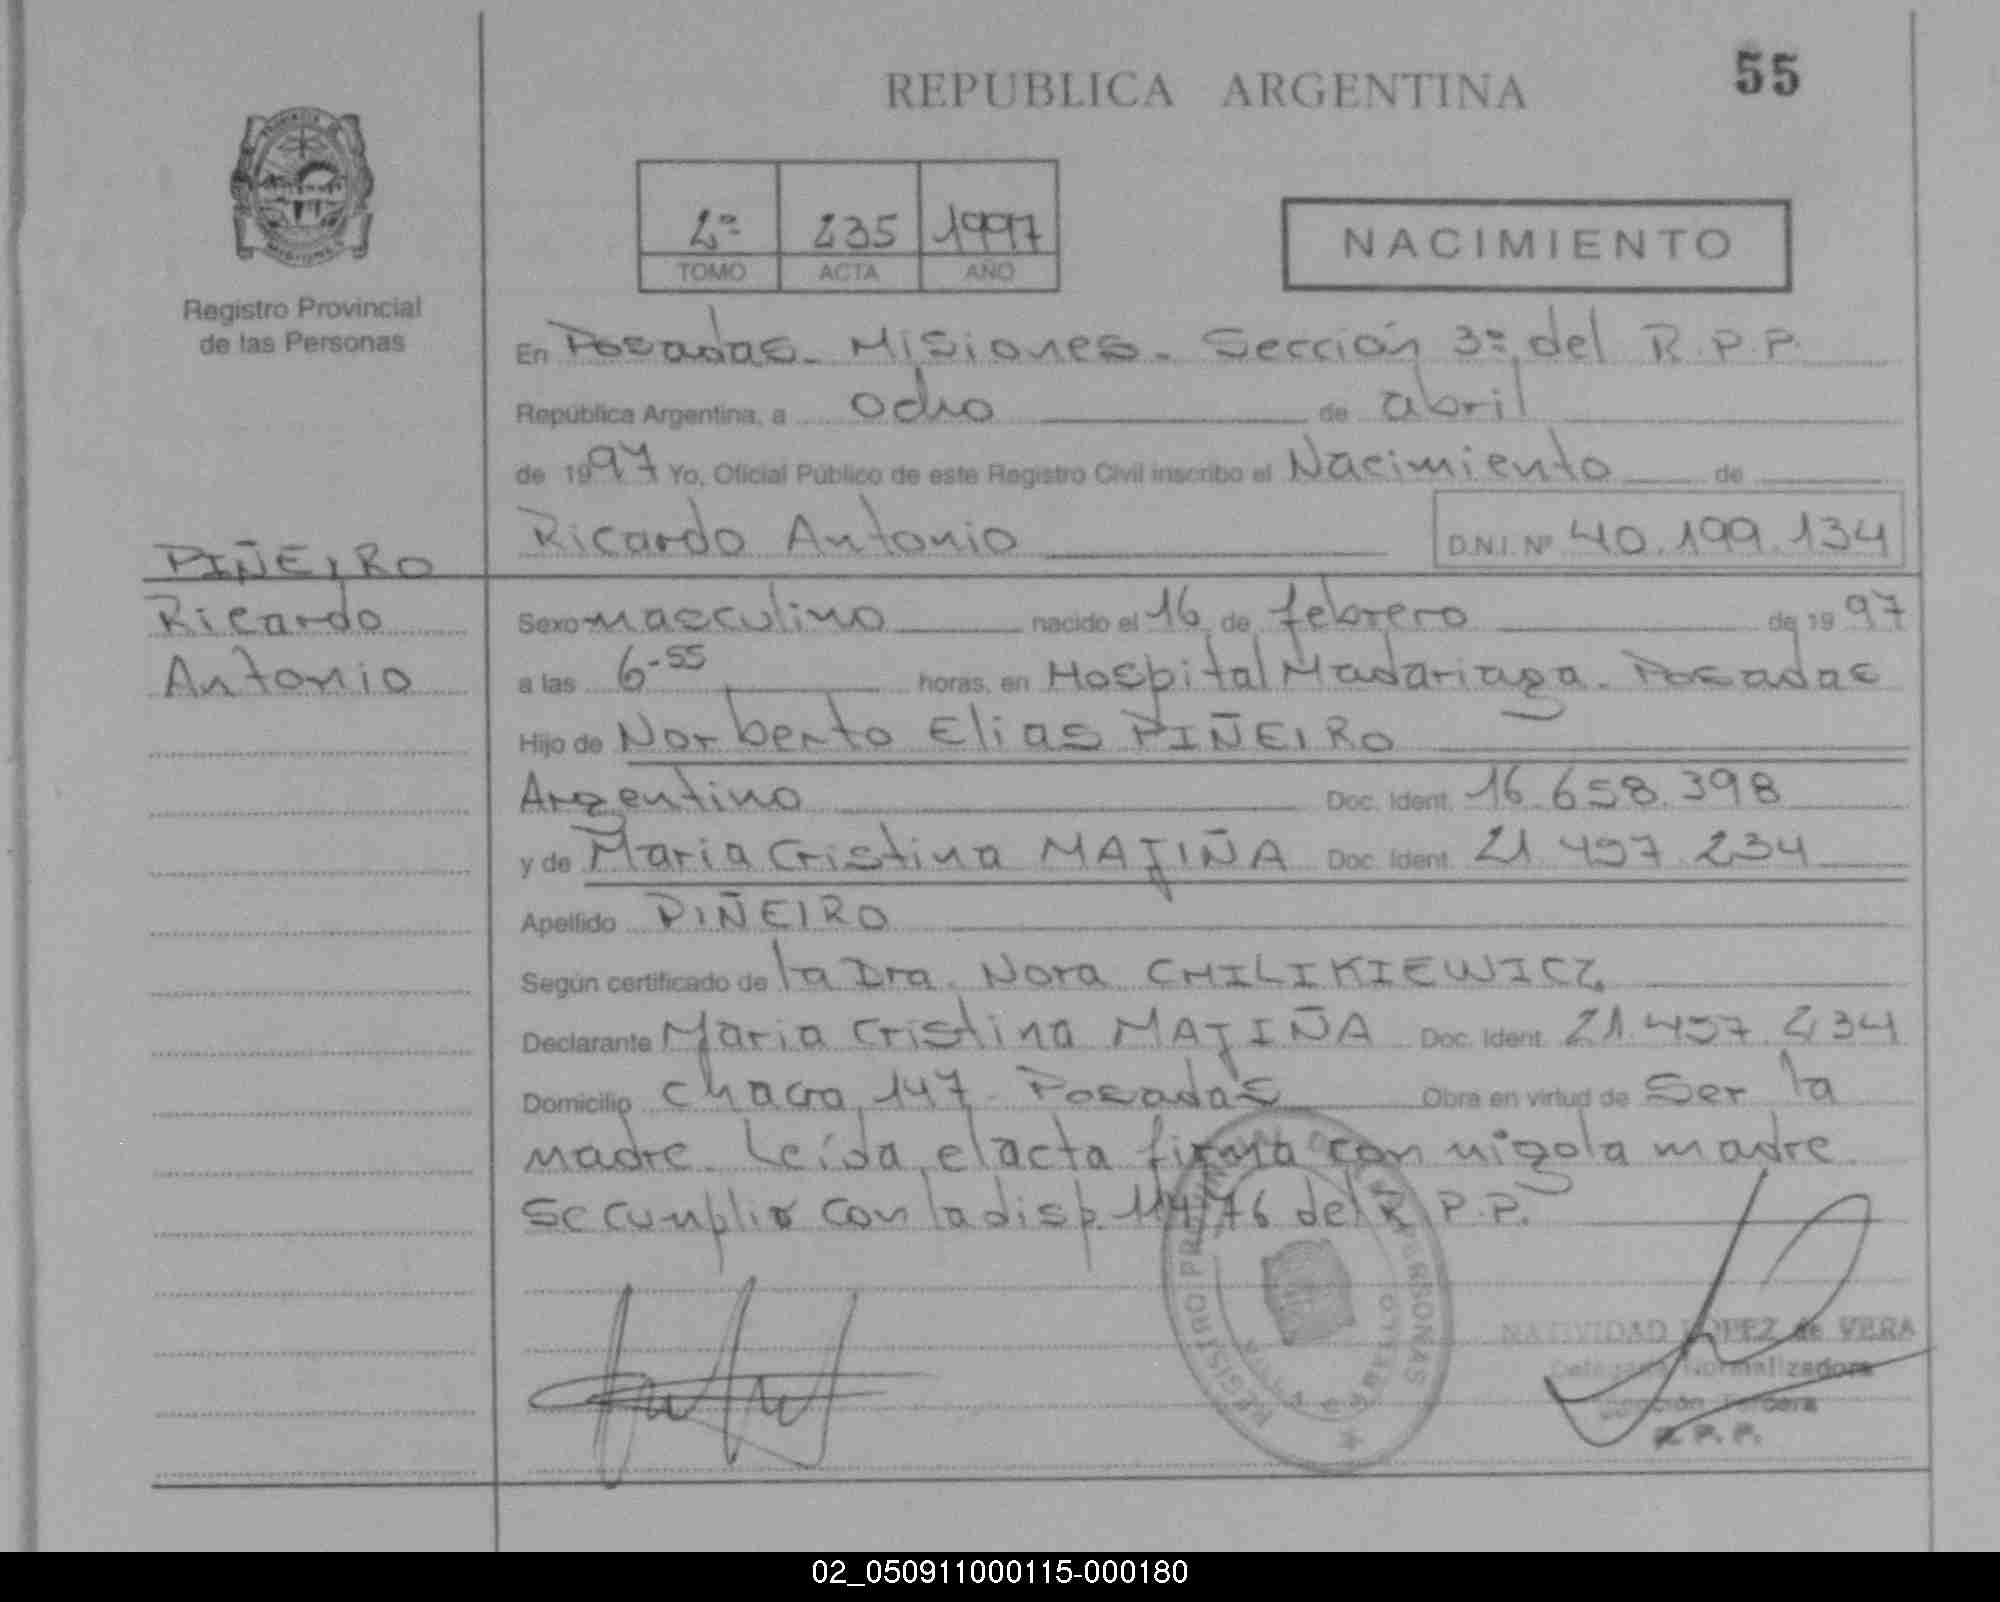 REPUBLICA ARGENTINA
55
2º 235 1997
TOMO ACTA AÑO
NACIMIENTO
Registro Provincial
de las Personas
En Posadas - Misiones - Sección 3º del R.P.P.
República Argentina, a ocho de abril
de 1997 Yo, Oficial Público de este Registro Civil inscribo el Nacimiento de
Ricardo Antonio D.N.I. Nº 40.199.134
PIÑEIRO
Ricardo
Antonio
Sexo masculino nacido el 16 de febrero de 1997
a las 6-55 horas, en Hospital Madariaga - Posadas
Hijo de Norberto Elias PIÑEIRO
Argentino Doc. Ident. 16.658.398
y de Maria Cristina MAJIÑA Doc. Ident. 21.457.234
Apellido PIÑEIRO
Según certificado de la Dra. Nora CHILIKIEWICZ
Declarante Maria Cristina MAJIÑA Doc. Ident. 21.457.234
Domicilio Chacra 147 - Posadas Obra en virtud de Ser la
madre. Leída el acta firma con migo la madre.
Se cumplio con la disp. 114/76 del R.P.P.
REGISTRO PROVINCIAL DE LAS PERSONAS
NATIVIDAD LOPEZ de VERA
Delegada Normalizadora
Sección Tercera
R.P.P.
02_050911000115-000180